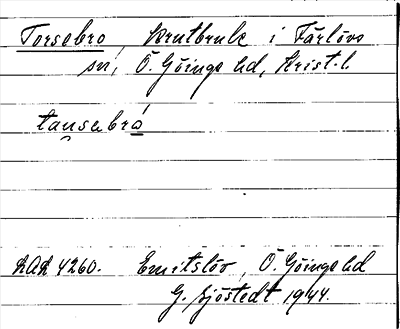 Torsebro, Krutbruk i Färlövs
sn, Ö. Göinge hd, Krist. l.
tausabrò
LAL 4260. Emitslöv, Ö. Göinge hd
G. Sjöstedt 1944.